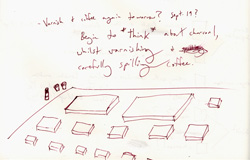 - Varnish & coffee again tomorrow? Sept. 19?
Begin to *think* about charcoal,
whilst varnishing &
carefully spilling coffee.